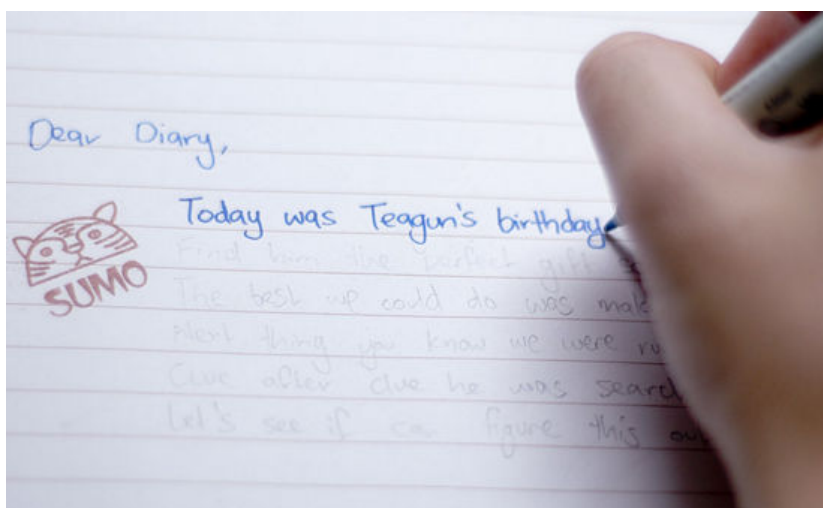 Dear Diary,
Today was Teagun's birthday
SUMO
Find him the perfect gift
The best we could do was make
Next thing you know we were
Clue after clue he was search
Let's see if can figure this out